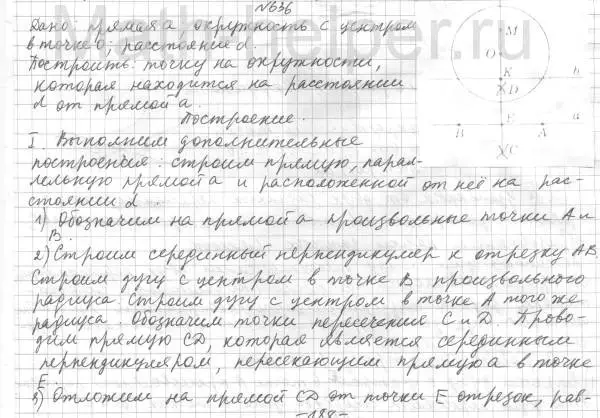 №636
Дано: прямая а, окружность с центром
в точке О; расстояние d.
Построить: точку на окружности,
которая находится на расстоянии
d от прямой а.
Построение.
I. Выполним дополнительные
построения: строим прямую, парал-
лельную прямой а и расположенной от неё на рас-
стоянии d.
1) Обозначим на прямой а произвольные точки А и
В.
2) Строим серединный перпендикуляр к отрезку АВ.
Строим дугу с центром в точке В произвольного
радиуса. Строим дугу с центром в точке А того же
радиуса. Обозначим точки пересечения С и D. Прово-
дим прямую CD, которая является серединным
перпендикуляром, пересекающим прямую а в точке
Е.
3) Отложим на прямой CD от точки Е отрезок, рав-
-188-
M
O
K
b
D
B
E
A
a
C
Mathhelper.ru